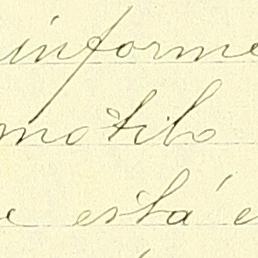 informe
motilo
e está e